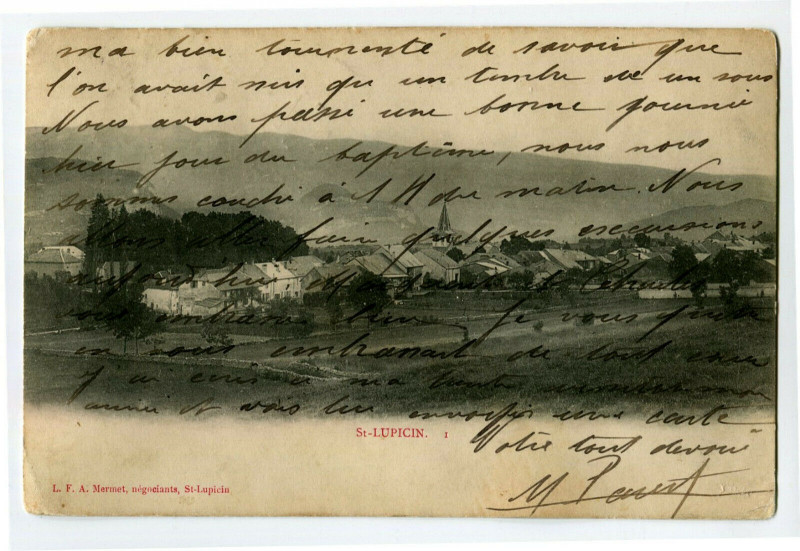 ma bien tourmenté de savoir que
l'on avait mis qu un timbre de un sous
Nous avons passé une bonne journée
hier jour du baptême, nous nous
sommes couché à 1 H du matin. Nous
allons aller faire quelques excursions
aujourd'hui et
vous embrasse bien je vous quitte
en vous embrassant de tout cœur
J'ai écris a ma tante
et vous lui envoyez une carte
Votre tout dévoué
M
St-LUPICIN. 1
L. F. A. Mermet, négociants, St-Lupicin